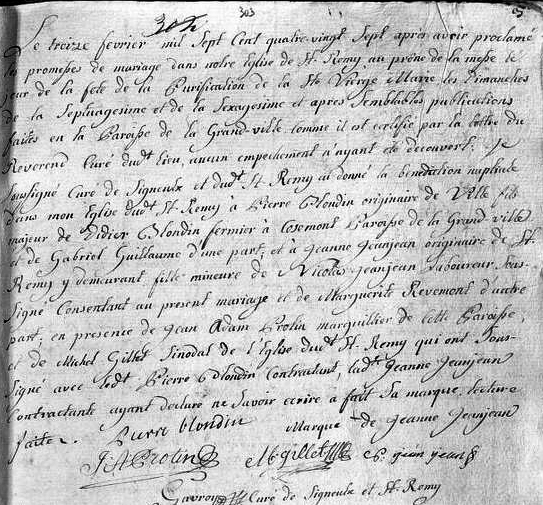 303
Le treize fevrier mil Sept Cent quatre-vingt Sept après avoir proclamé
les promesses de mariage dans notre Eglise de St. Remy au prône de la messe le
jour de la fete de la Purification de la Ste Vierge Marie, les Dimanches
de la Septuagesime et de la Sexagesime et apres Semblables publications
faites en la Paroisse de la Grand-ville comme il est certifié par la lettre du
Reverend Curé dudt lieu, aucun empechement n'ayant été decouvert. Je
soussigné Curé de Signeulx et dudt St. Remy ai donné la benediction nuptiale
dans mon Eglise dudt St. Remy à Pierre Blondin originaire de Ville fils
majeur de Didier Blondin fermier à Cosemont Paroisse de la Grand ville
et de Gabriel Guillaume d'une part; et à Jeanne Jeanjean originaire de St.
Remy y demeurant fille mineure de Nicolas Jeanjean Laboureur Sous-
Signé Consentant au present mariage et de Marguerite Revemont d'autre
part; en presence de Jean Adam Prolin marguillier de cette Paroisse,
et de Michel Gillet Sinodal de l'Eglise dudt St. Remy qui ont Sous-
Signé avec ledt Pierre Blondin Contractant, ladte Jeanne Jeanjean
Contractante ayant declaré ne Savoir ecrire a fait Sa marque, lecture
faite.
Pierre blondin Marque de Jeanne Jeanjean
J A Prolin M gillet jean jean
Gavroy Curé de Signeulx et St. Remy